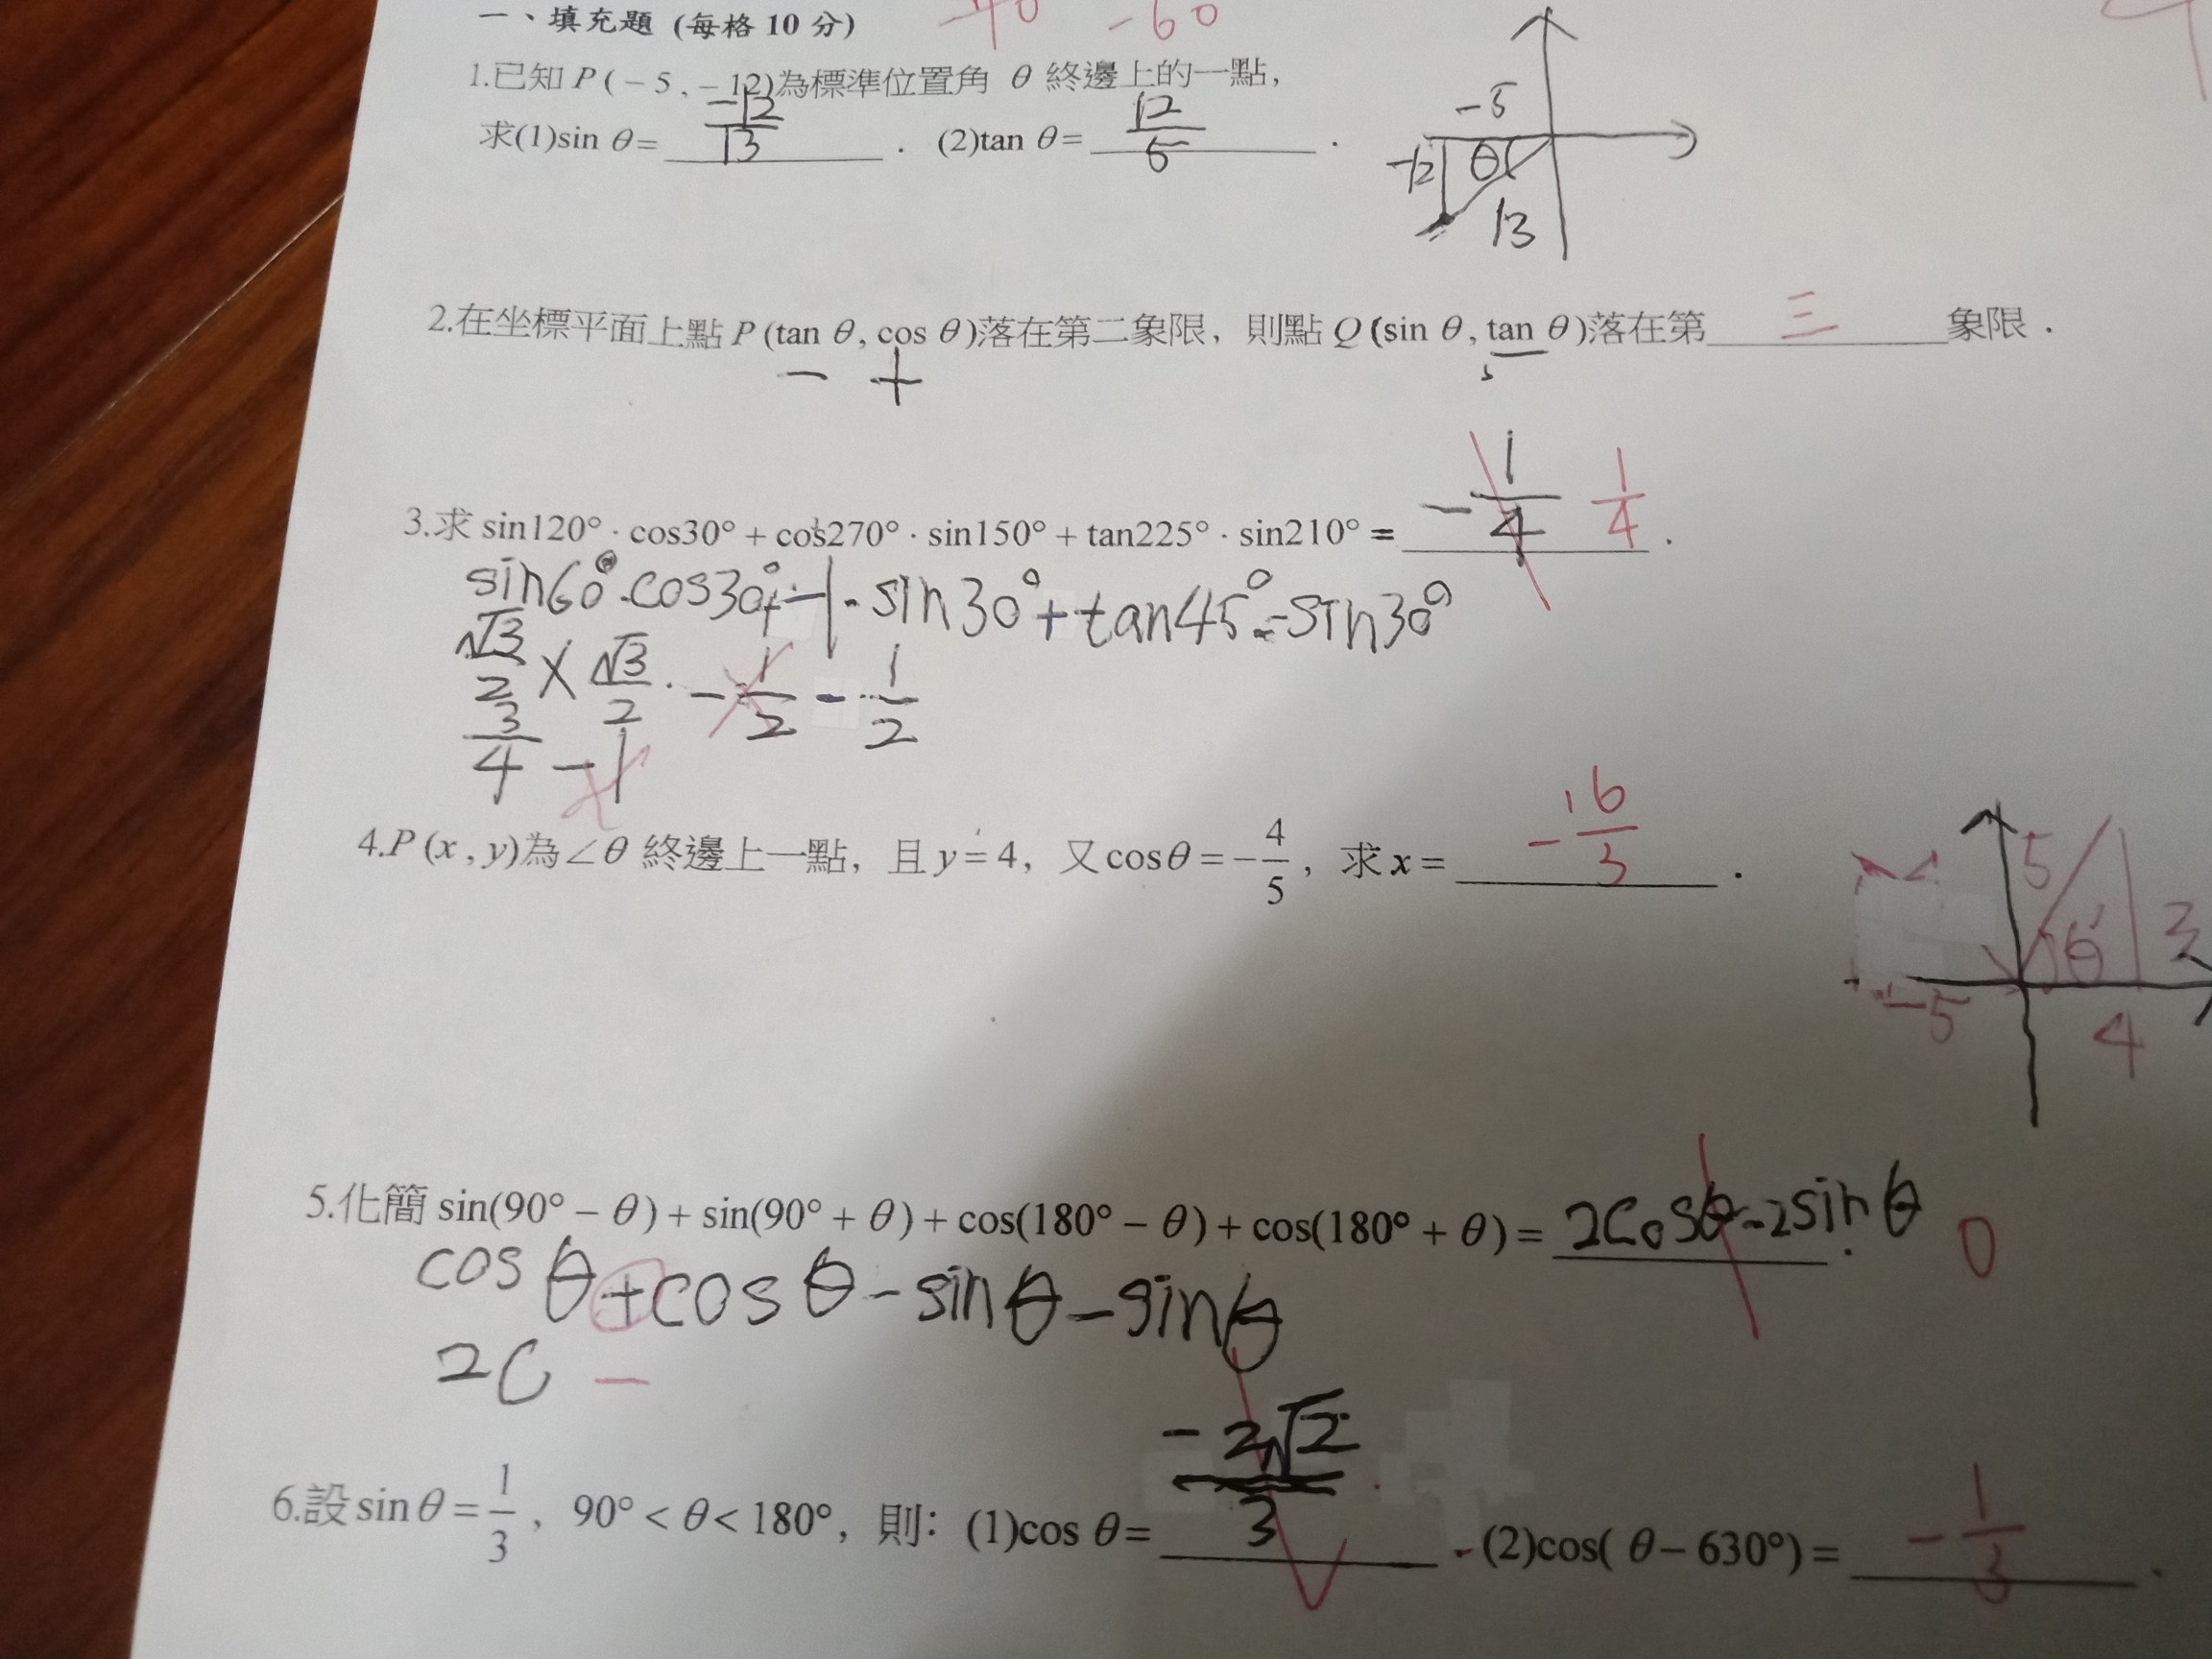 一、填充題 (每格 10 分) -40 -60
1.已知 P ( − 5 , − 12)為標準位置角 θ 終邊上的一點，
求(1)sin θ = -12/13 . (2)tan θ = 12/5 .
-5
-12 θ
13
2.在坐標平面上點 P (tan θ , cos θ )落在第二象限，則點 Q (sin θ , tan θ )落在第 三 象限．
− + −
3.求 sin120° · cos30° + cos270° · sin150° + tan225° · sin210° = -1/4 1/4 .
sin60°·cos30°+ -1·sin30°+tan45°·-sin30°
√3/2 × √3/2 · - 1/2 - 1/2
3/4 - 1
4.P (x , y)為∠θ 終邊上一點，且 y = 4，又 cosθ = −4/5，求 x = -16/3 .
5 θ' 3
-5 4
5.化簡 sin(90° − θ ) + sin(90° + θ ) + cos(180° − θ ) + cos(180° + θ ) = 2cosθ-2sinθ . 0
cosθ+cosθ-sinθ-sinθ
2C −
6.設 sin θ = 1/3，90° < θ < 180°，則：(1)cos θ = -2√2/3 . (2)cos( θ − 630°) = -1/3 .